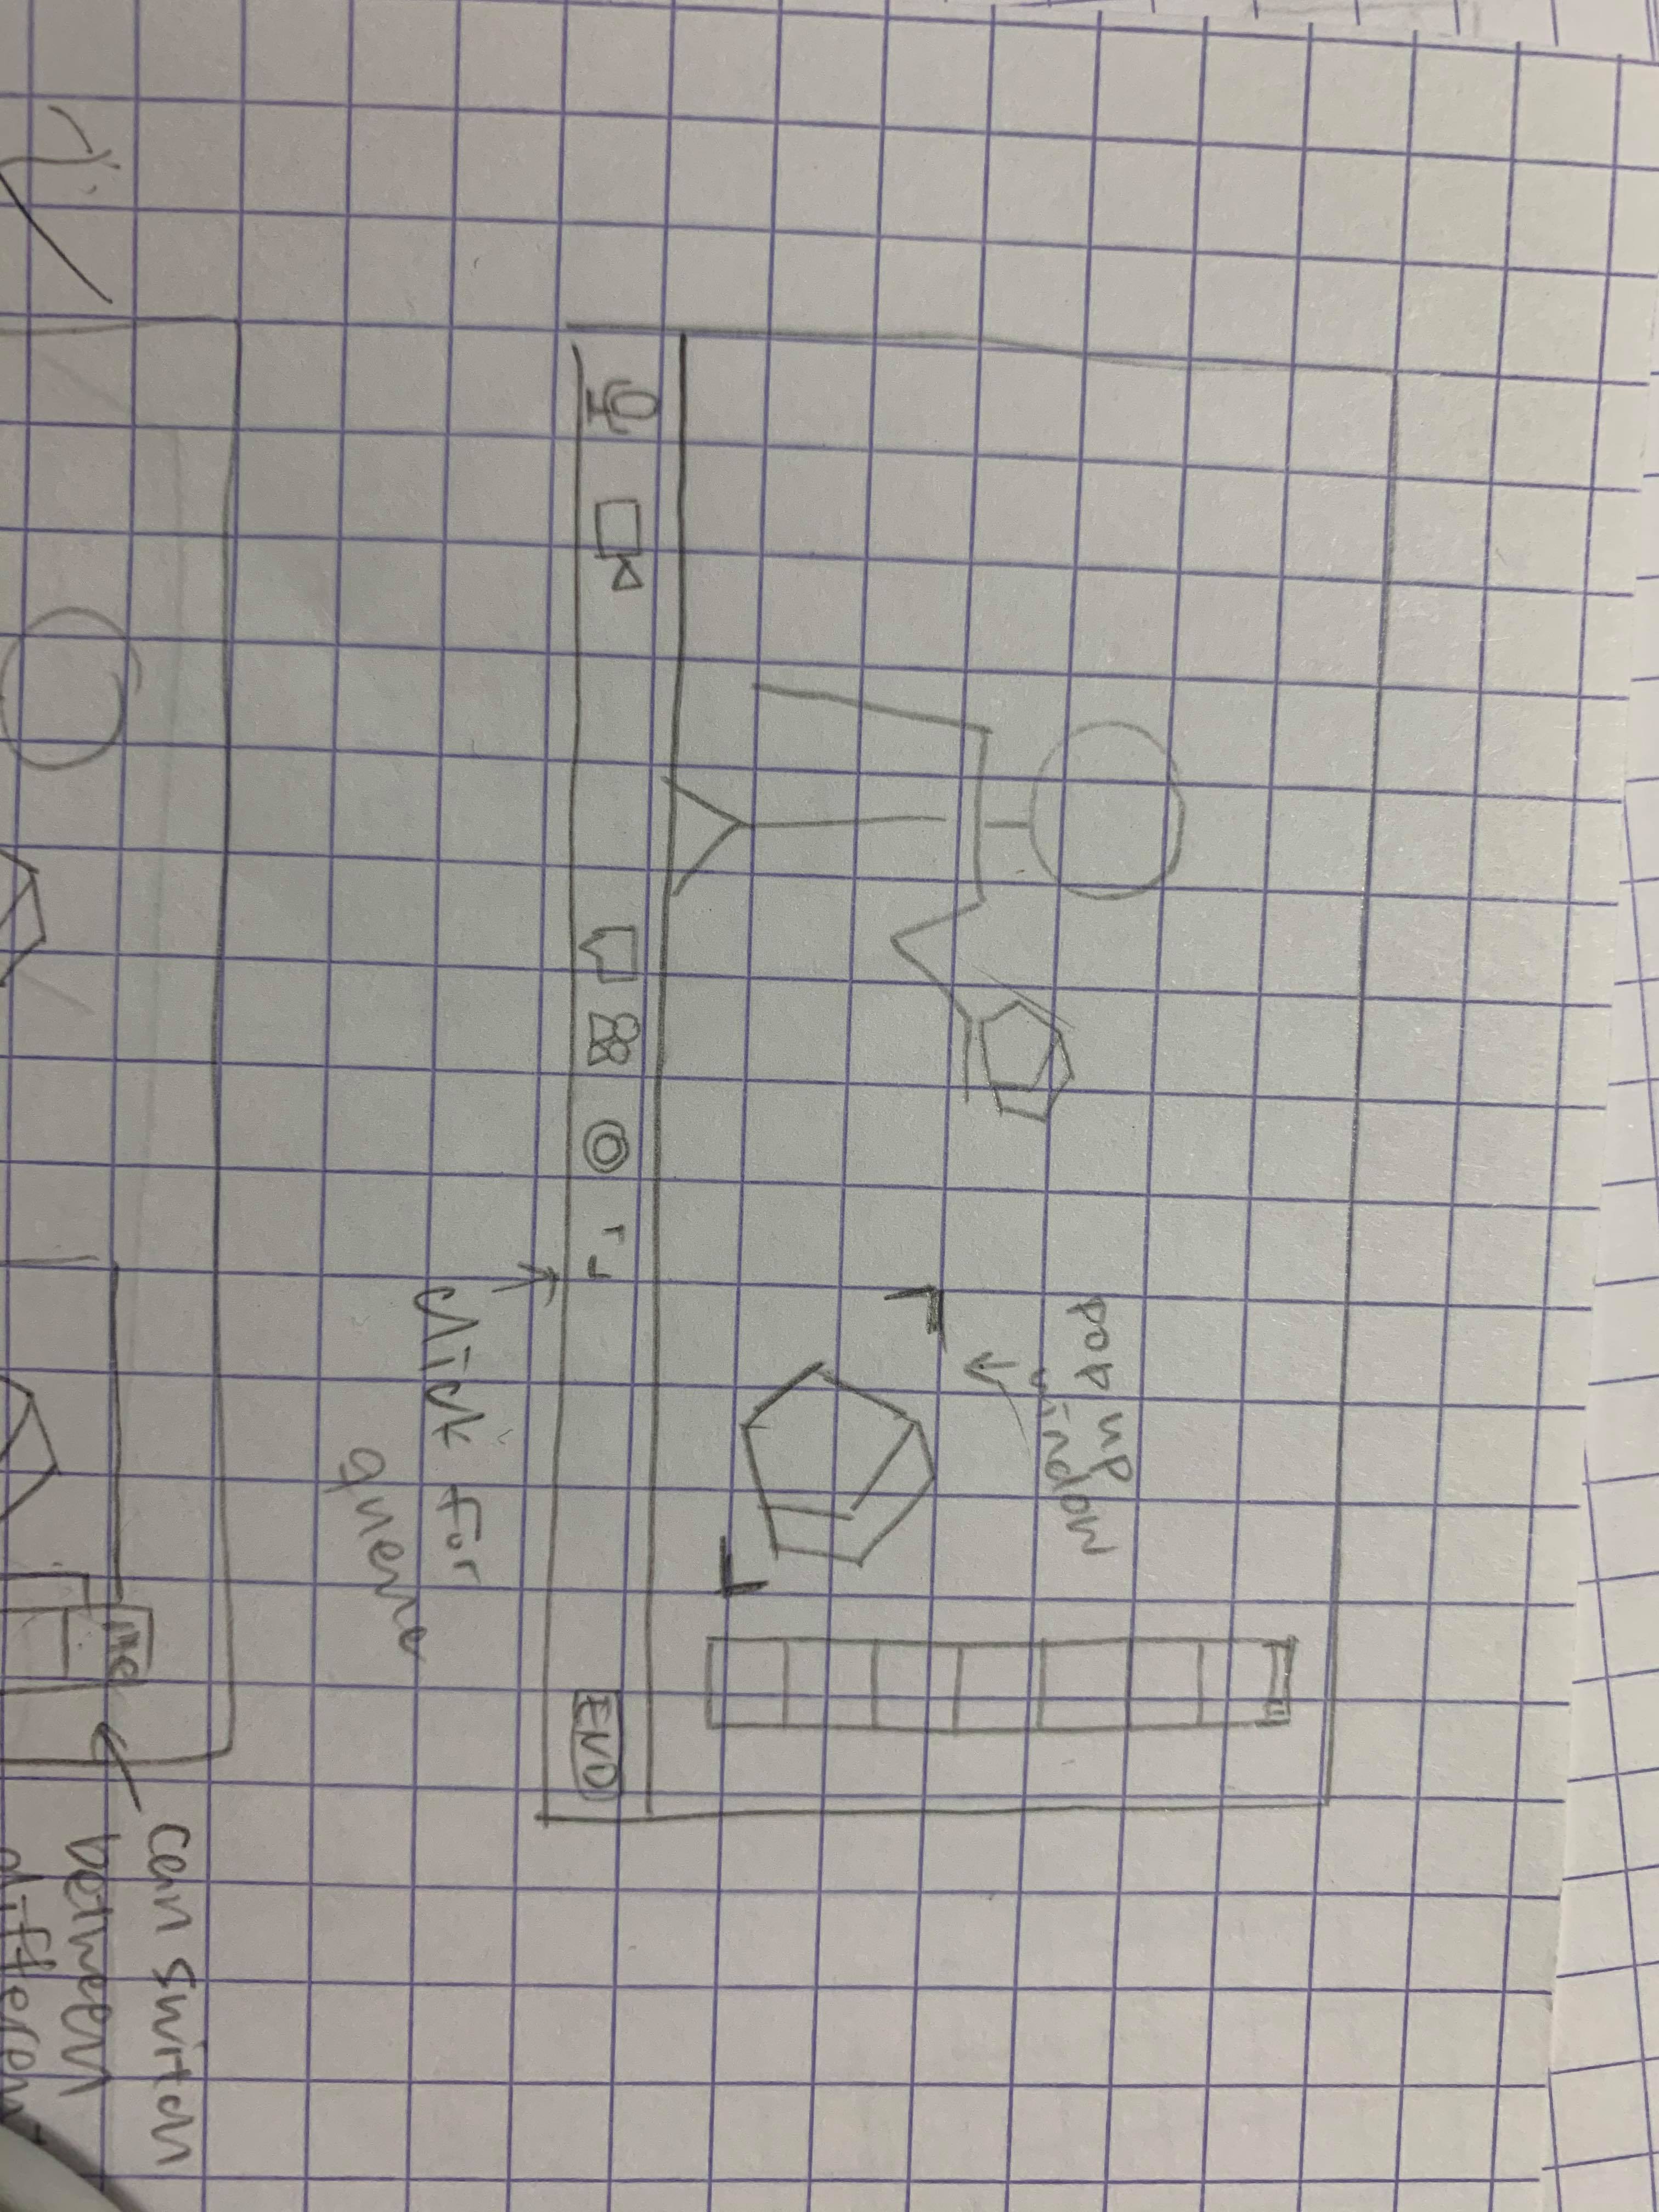 pop up
window
END
click for
queue
me
can switch
between
different